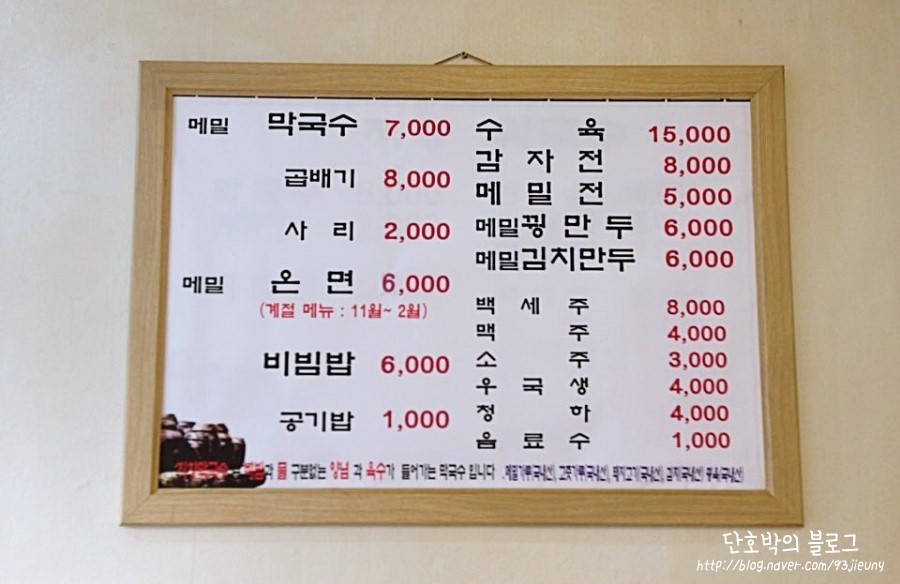 메밀 막국수 7,000
곱배기 8,000
사 리 2,000
메밀 온 면 6,000
(계절 메뉴 : 11월~ 2월)
비빔밥 6,000
공기밥 1,000
수 육 15,000
감 자 전 8,000
메 밀 전 5,000
메밀꿩 만 두 6,000
메밀김치만두 6,000
백 세 주 8,000
맥 주 4,000
소 주 3,000
우 국 생 4,000
청 하 4,000
음 료 수 1,000
비빔과 물 구분없는 양념 과 육수가 들어가는 막국수 입니다 .메밀가루(국내산), 고춧가루(국내산), 돼지고기(국내산), 김치(국내산)
단호박의 블로그
http://blog.naver.com/93jieuny